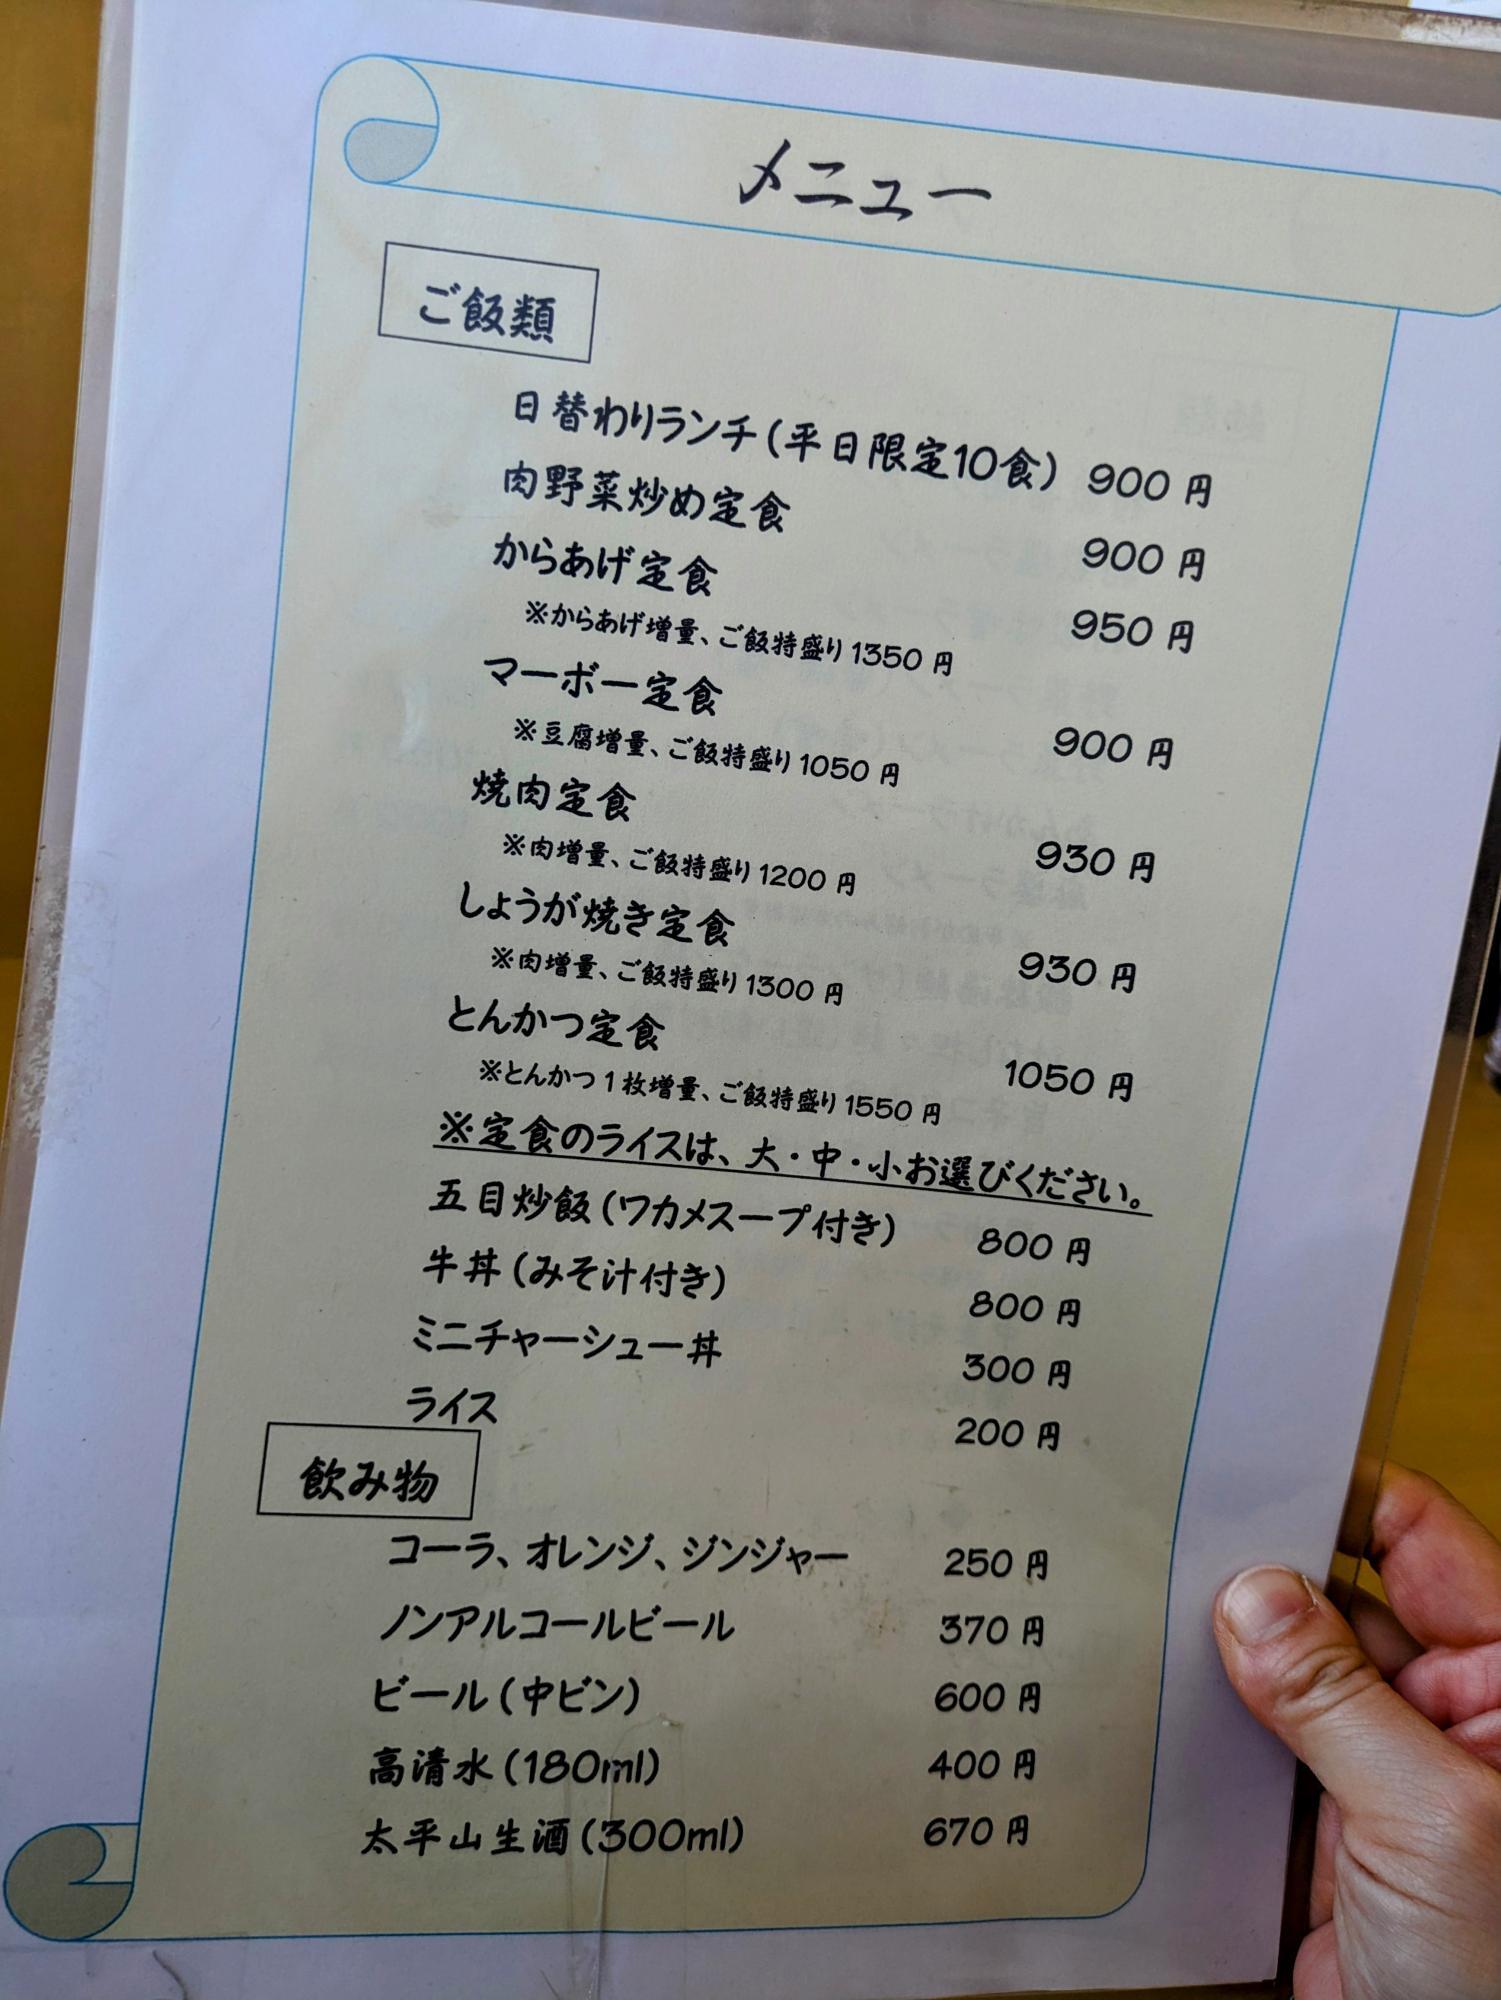 メニュー
ご飯類
日替わりランチ(平日限定10食) 900円
肉野菜炒め定食 900円
からあげ定食 950円
※からあげ増量、ご飯特盛り1350円
マーボー定食 900円
※豆腐増量、ご飯特盛り1050円
焼肉定食 930円
※肉増量、ご飯特盛り1200円
しょうが焼き定食 930円
※肉増量、ご飯特盛り1300円
とんかつ定食 1050円
※とんかつ1枚増量、ご飯特盛り1550円
※定食のライスは、大・中・小お選びください。
五目炒飯(ワカメスープ付き) 800円
牛丼(みそ汁付き) 800円
ミニチャーシュー丼 300円
ライス 200円
飲み物
コーラ、オレンジ、ジンジャー 250円
ノンアルコールビール 370円
ビール(中ビン) 600円
高清水(180ml) 400円
太平山生酒(300ml) 670円